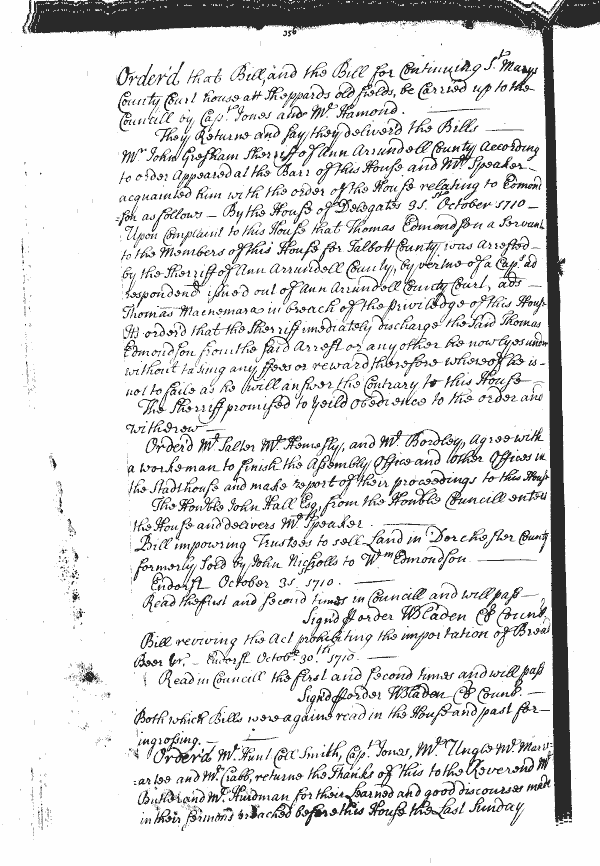 356
Order'd that Bill, and the Bill for Continuing St. Marys
County Court house att Sheppards old fields, be Carried up to the
Councill by Capt. Jones and Mr. Hamond.
They Returne and say they deliverd the Bills
Mr. John Gresham Sherriff of Ann Arrundell County According
to order Appeared at the Barr of this House and Mr. Speaker
acquainted him with the order of the House relating to Edmond
son as follows — By the House of Delegates 31st October 1710 —
Upon Complaint to this House that Thomas Edmondson a Servant
to the Members of this House for Talbott County was Arrested
by the Sherriff of Ann Arrundell County, by vertue of a Caps. ad
respondend issued out of Ann Arrundell County Court, ads
Thomas Macnemara in breach of the priviledge of this House
Its orderd that the Sherriff imediately discharge the said Thomas
Edmondson from the said Arrest or any other he now lyes under
without taking any ffees or reward therefore whereof he is
not to faile as he will answer the Contrary to this House
The Sherriff promised to yeild obedience to the order and
withdrew
Order'd Mr. Salter Mr. Hemesly, and Mr. Bordley, Agree with
a workeman to finish the Assembly Office and other Offices in
the Stadthouse and make report of their proceedings to this House
The Honble John Hall Esq. from the Honble Councill enters
the House and delivers Mr. Speaker
Bill impowring Trustees to sell Land in Dorchester County
formerly Sold by John Nicholls to Wm Edmondson
Endorst October 31. 1710.
Read the first and second times in Councill and will pass
Signd p order W Bladen Cl Counl.
Bill reviving the Act prohibiting the importation of Bread
Beer &c. Endorst Octobr 30th 1710.
Read in Councill the first and second times and will pass
Signd p order W Bladen Cl Counl.
Both which Bills were againe read in the House and past for
ingrossing.
Order'd Mr. Hunt Coll Smith, Capt. Jones, Mr. Ungle Mr.
and Mr. Crabb, returne the Thanks of this to the Reverend Mr
and Mr. Hindman for their Learned and good discourses made
in their sermons preached before this House the Last Sunday